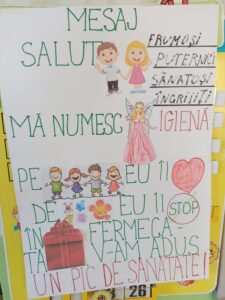 MESAJ
SALUT
FRUMOȘI
PUTERNICI
SĂNĂTOȘI
ÎNGRIJIȚI
MĂ NUMESC IGIENA
PE EU ÎI
DE EU ÎI STOP
ÎN FERMECA-
TĂ V-AM ADUS
UN PIC DE SĂNĂTATE!
26